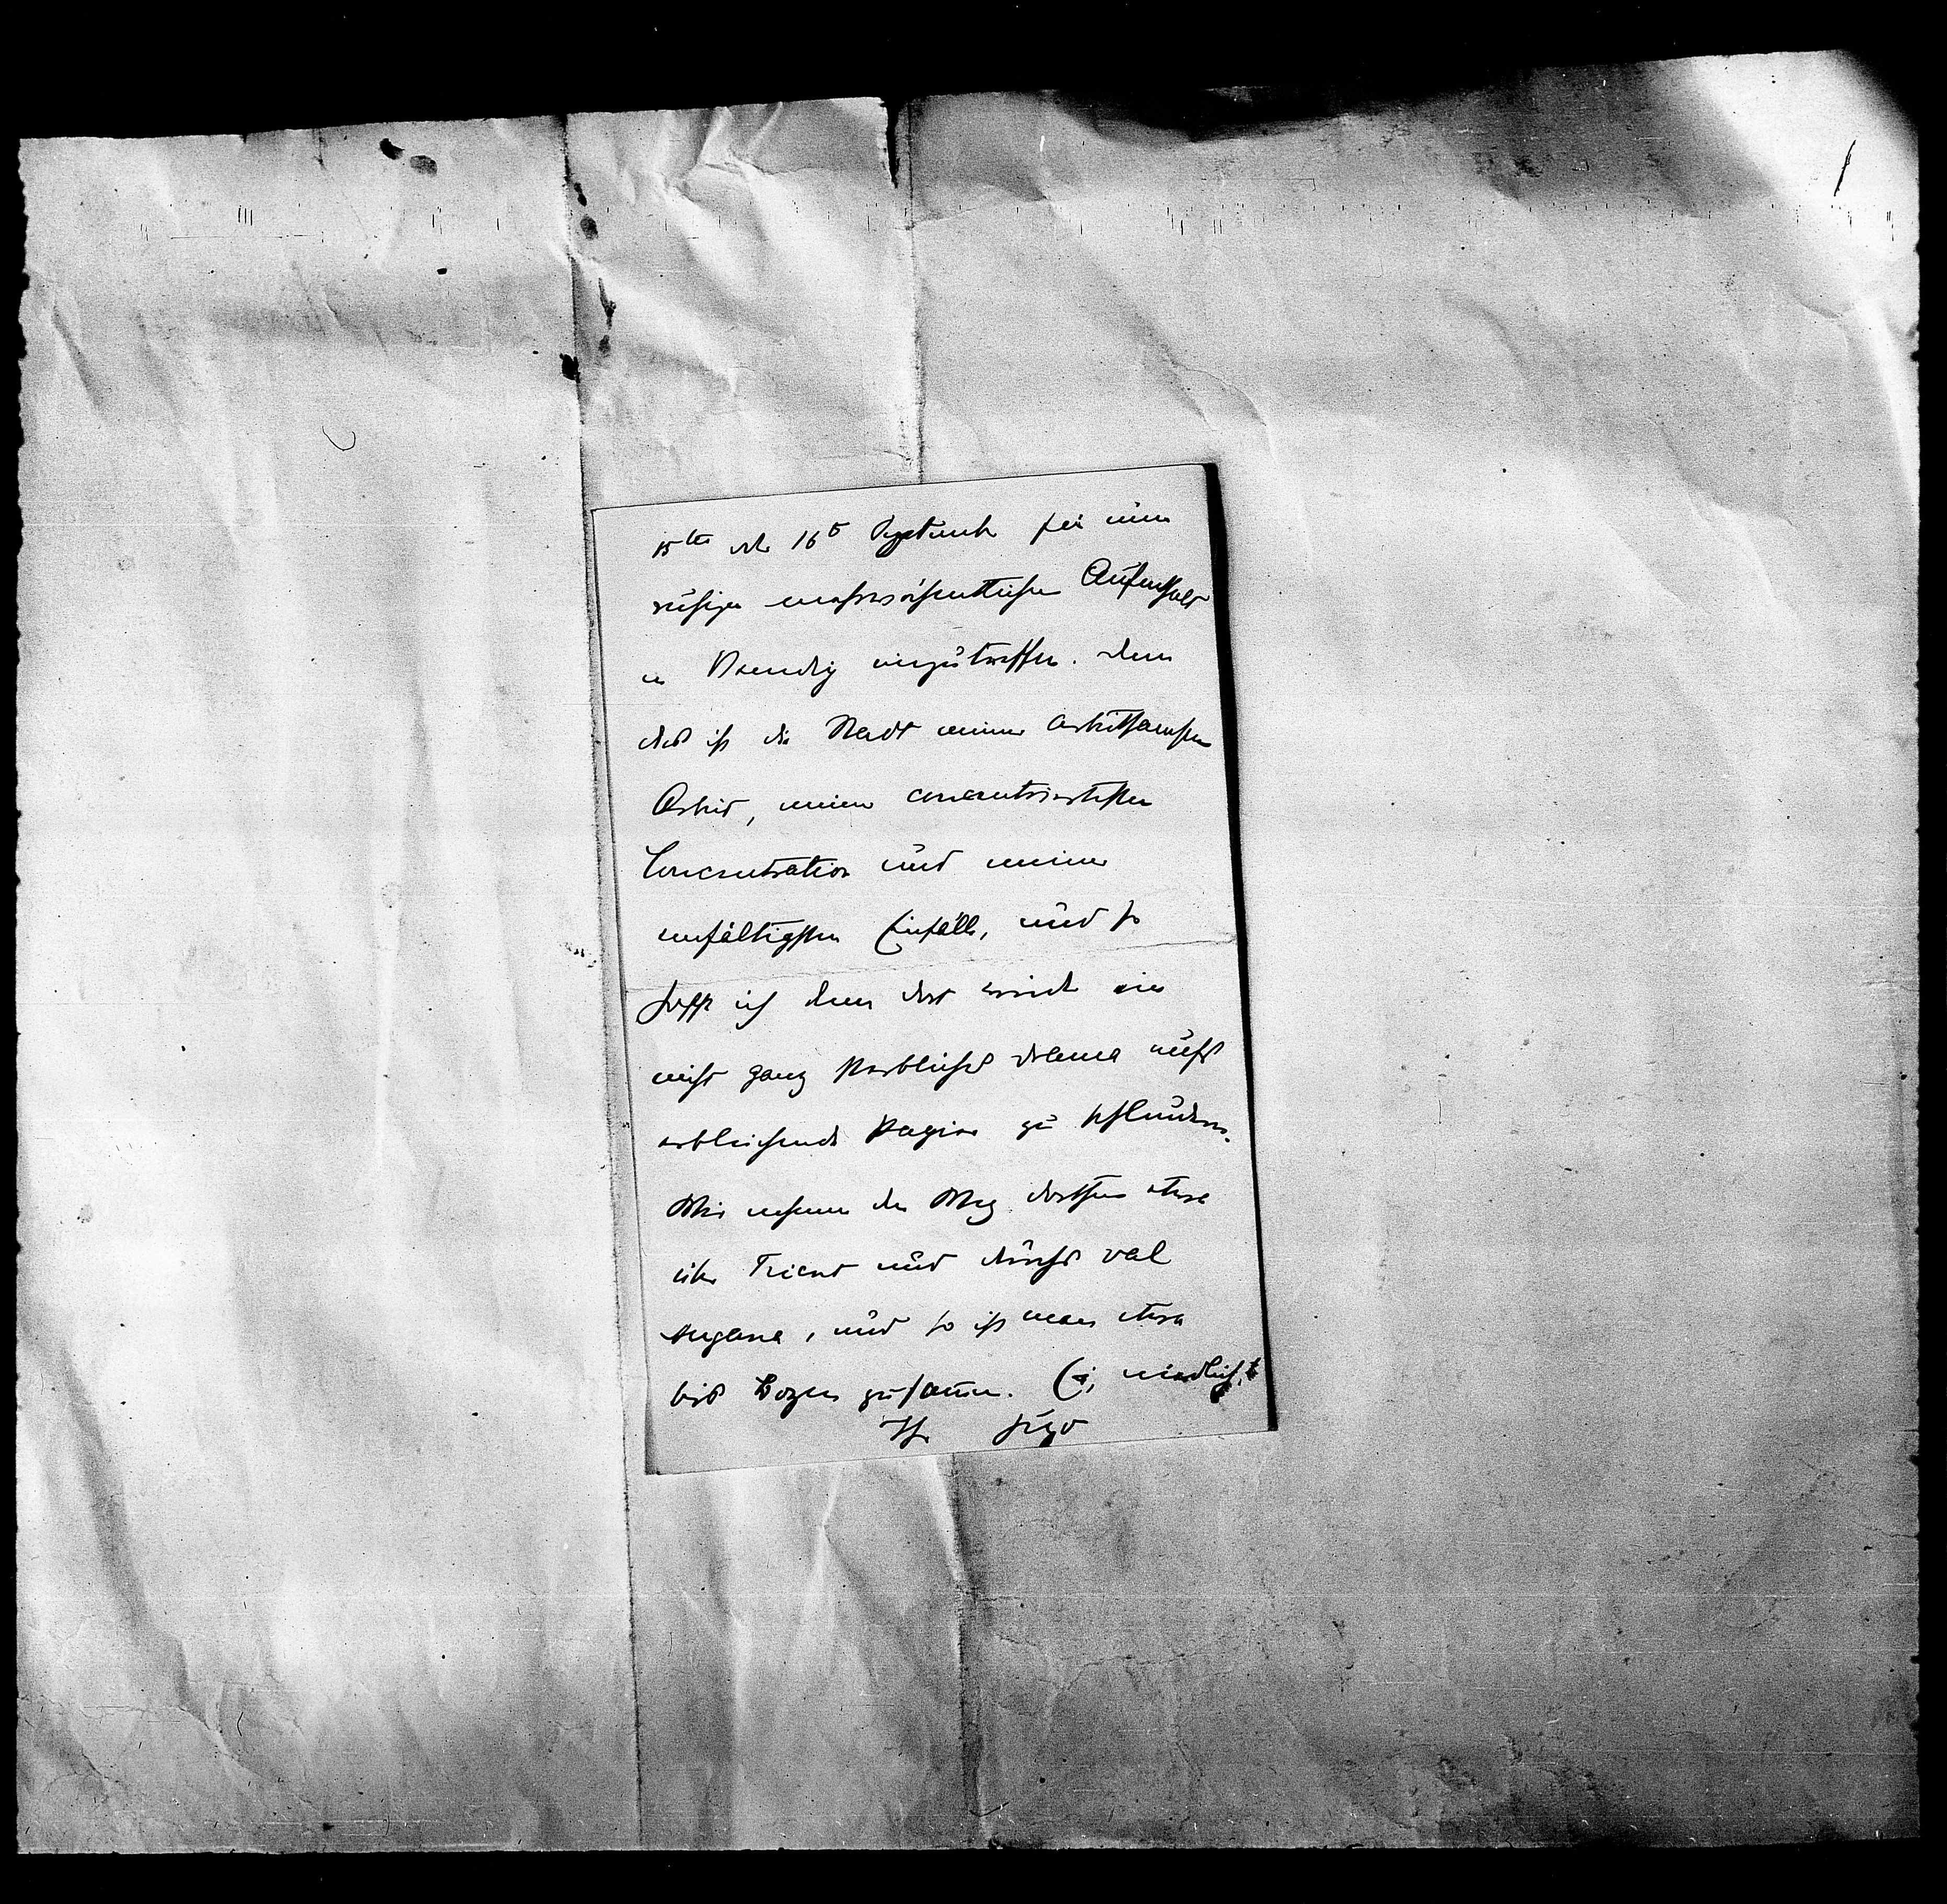 15ten oder 16ten September für einen
ruhigen mehrwöchentlichen Aufenthalt
in Venedig einzutreffen. Denn
das ist die Stadt meiner arbeitsamsten
Arbeit, meiner concentriertesten
Concentration und meiner
einfältigsten Einfälle, und so
hoffe ich denn dort wieder ein
nicht ganz sterbliches Drama aufs
erbleichende Papier zu schleudern.
Wir nehmen den Weg dorthin etwa
über Trient und durchs val
sugana, und so ist man etwa
bis Bozen zusammen.
Ihr Hugo